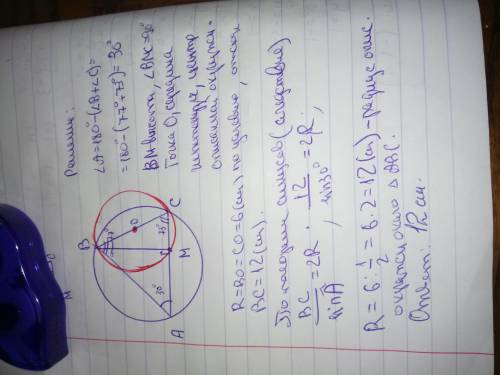 Решение:
∠A=180°-(∠B+∠C)=
=180°-(77°+73°)=30°
BM-высота, ∠BMC=90°
Точка O, середина
гипотенузы, центр
описанной окружн.
R=BO=CO=6(см) по условию, отсюда
BC=12(см).
По теореме синусов (следствие)
BC/sinA=2R, 12/sin30°=2R,
R=6:1/2=6·2=12(см)-радиус опис.
окружн около ΔABC.
Ответ: 12 см.
B
77°
O
73°
C
M
30°
A
M